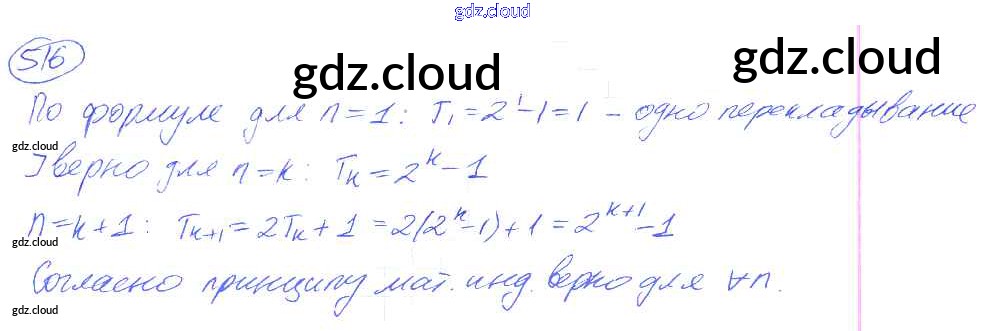 gdz.cloud
516
gdz.cloud gdz.cloud
По формуле для n=1: T₁=2¹-1=1 - одно перекладывание
gdz.cloud
] верно для n=k: Tₖ=2ᵏ-1
n=k+1: Tₖ₊₁=2Tₖ+1=2(2ᵏ-1)+1=2ᵏ⁺¹-1
gdz.cloud
Согласно принципу мат. инд. верно для ∀n.
gdz.cloud